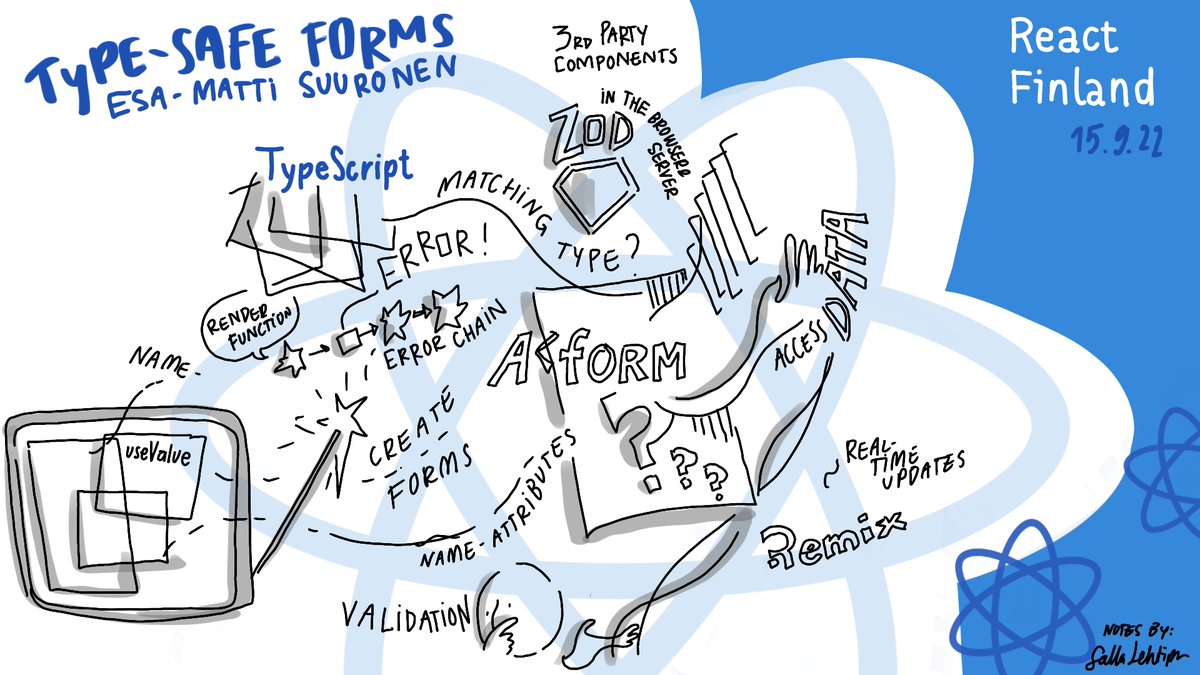 TYPE-SAFE FORMS
ESA-MATTI SUURONEN
3RD PARTY
COMPONENTS
React
Finland
15.9.22
ZOD
IN THE BROWSER
SERVER
TypeScript
MATCHING
TYPE?
ERROR!
DATA
ACCESS
RENDER
FUNCTION
ERROR CHAIN
NAME-
A <FORM
? ? ?
useValue
CREATE
FORMS
NAME-ATTRIBUTES
~ REAL-
TIME
UPDATES
Remix
VALIDATION
NOTES BY:
Salla